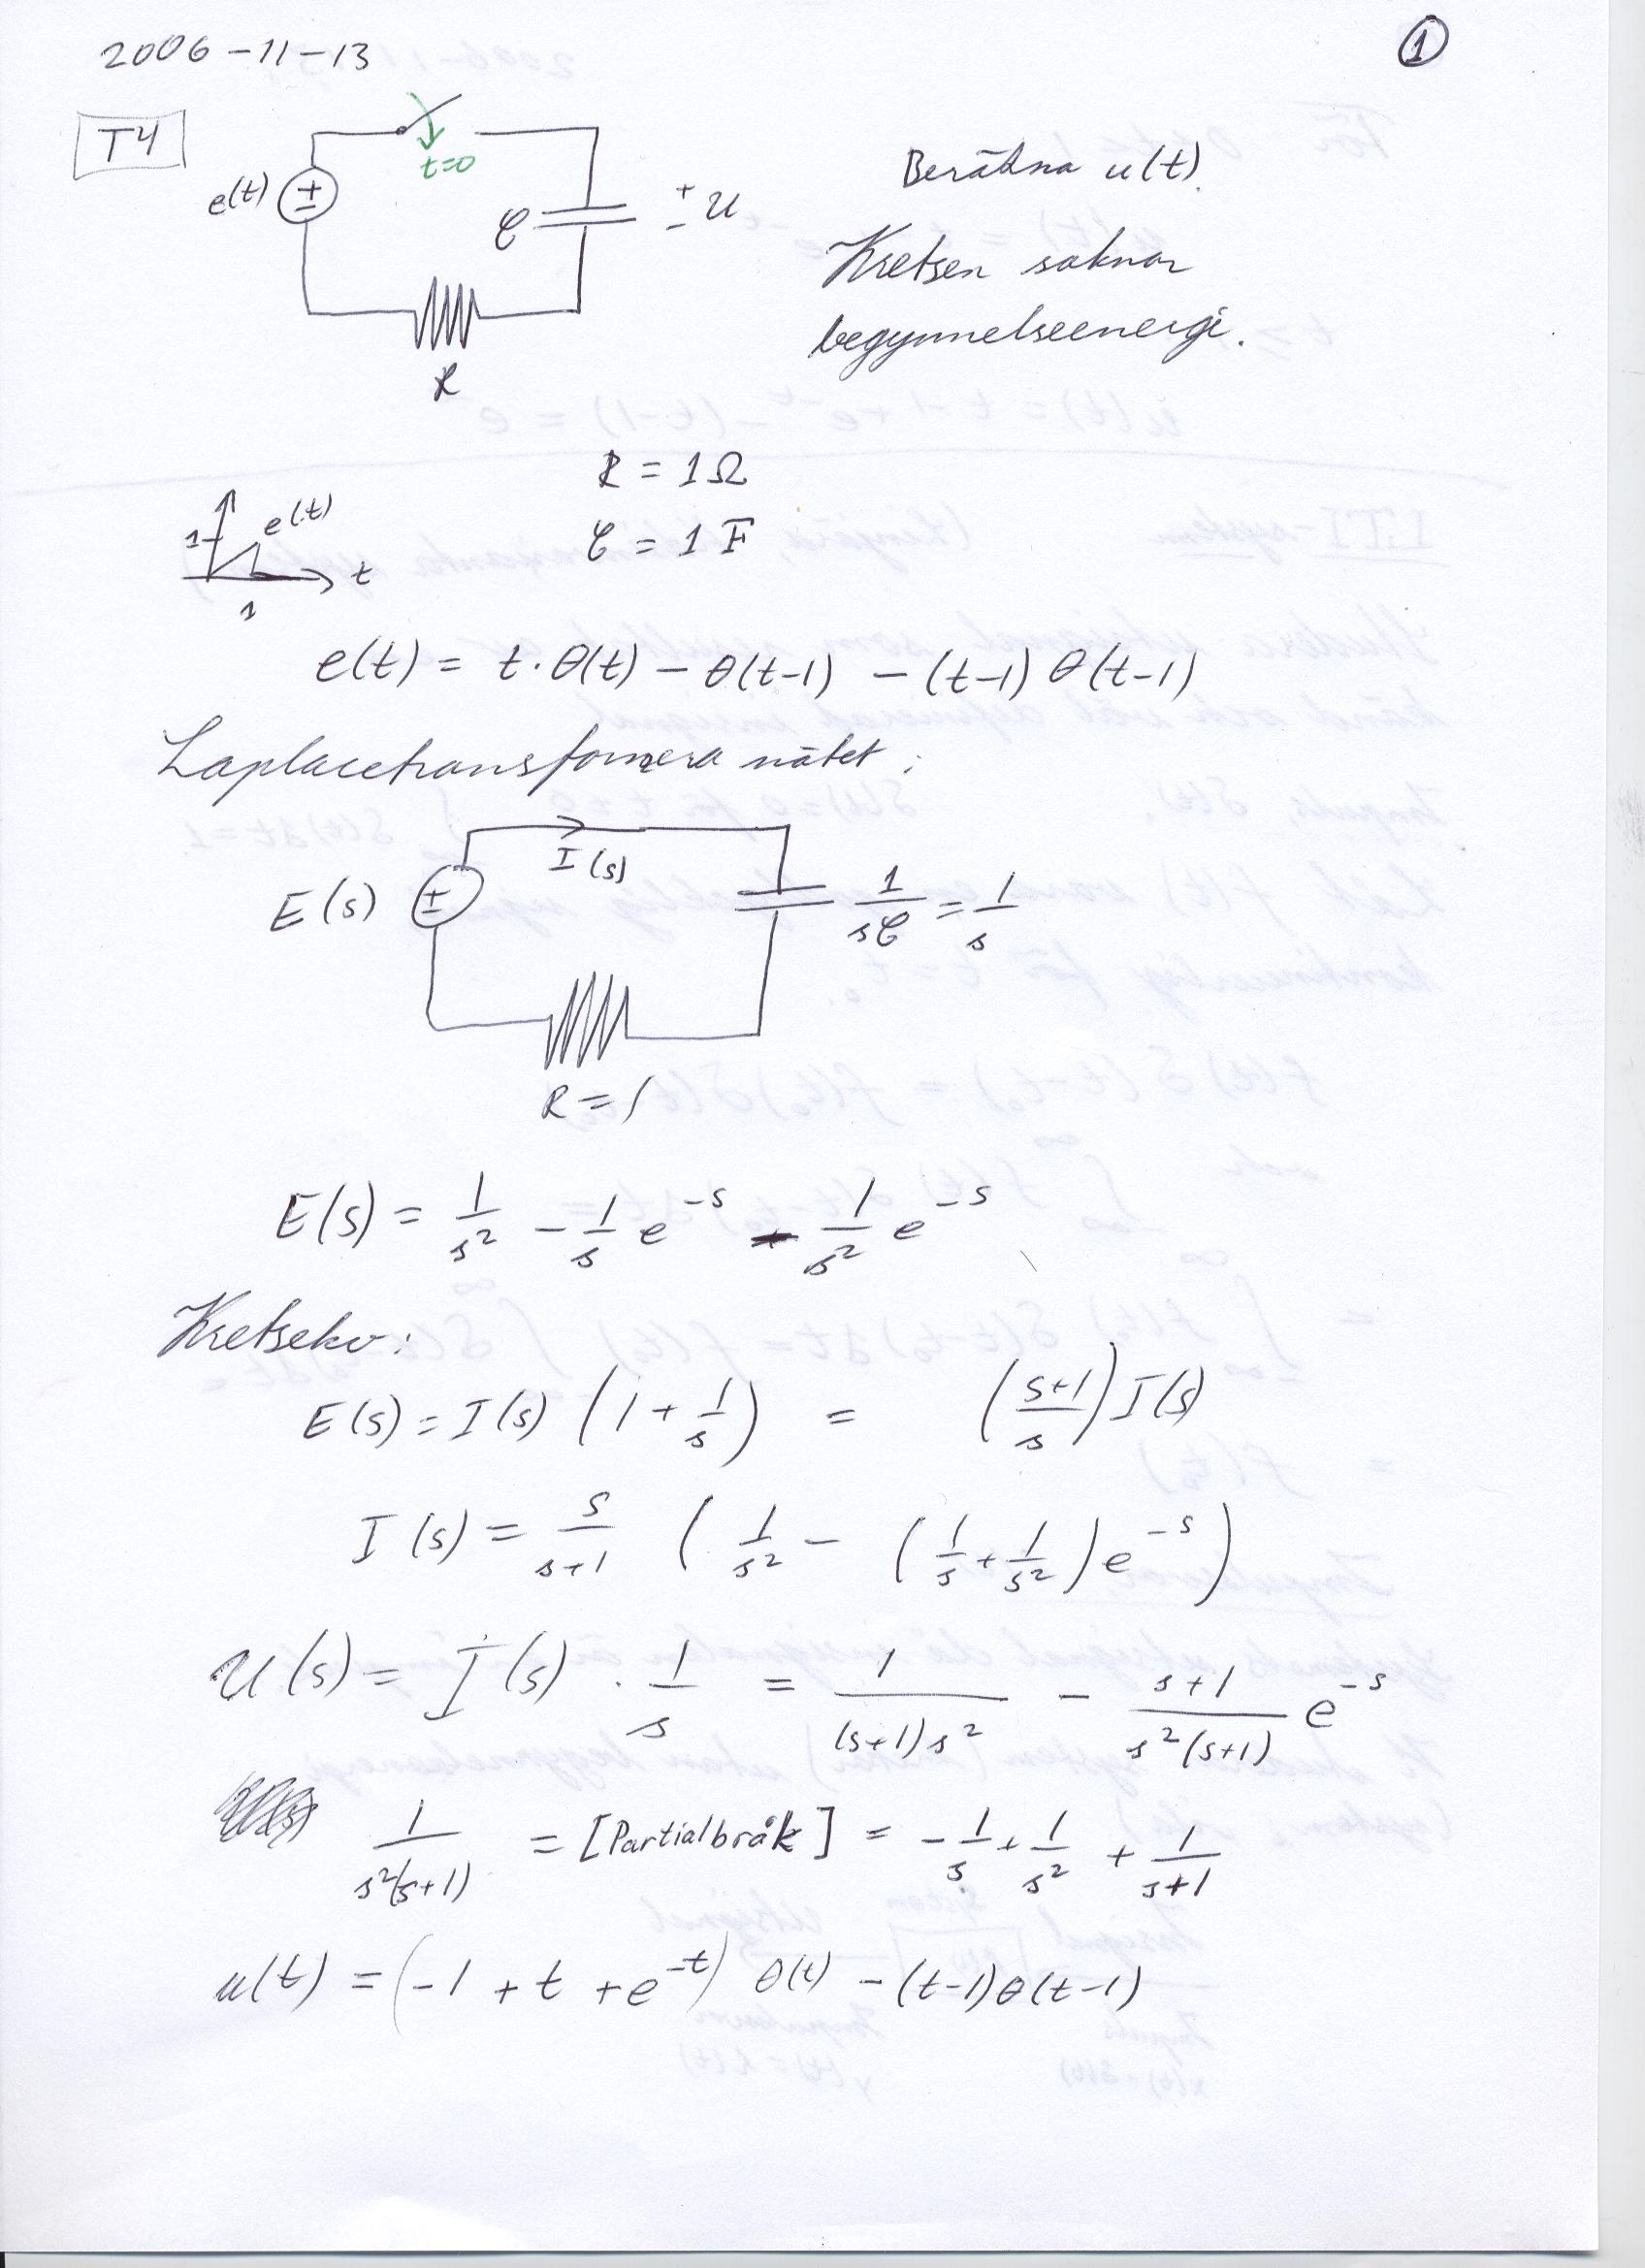 2006-11-13
①
T4
t=0
e(t)
±
C
+
-
u
R
Beräkna u(t).
Kretsen saknar
begynnelseenergi.
R = 1Ω
C = 1 F
1
e(t)
t
1
e(t) = t·θ(t) − θ(t−1) − (t−1) θ(t−1)
Laplacetransformera nätet:
I(s)
E(s)
±
1/sC = 1/s
R = 1
E(s) = 1/s² − 1/s e^{-s} − 1/s² e^{-s}
Kretsekv:
E(s) = I(s) (1 + 1/s) = ((s+1)/s) I(s)
I(s) = s/(s+1) (1/s² − (1/s + 1/s²) e^{-s})
U(s) = I(s) · 1/s = 1/((s+1)s²) − (s+1)/(s²(s+1)) e^{-s}
1/(s²(s+1)) = [Partialbråk] = −1/s + 1/s² + 1/(s+1)
u(t) = (−1 + t + e^{-t}) θ(t) − (t−1)θ(t−1)